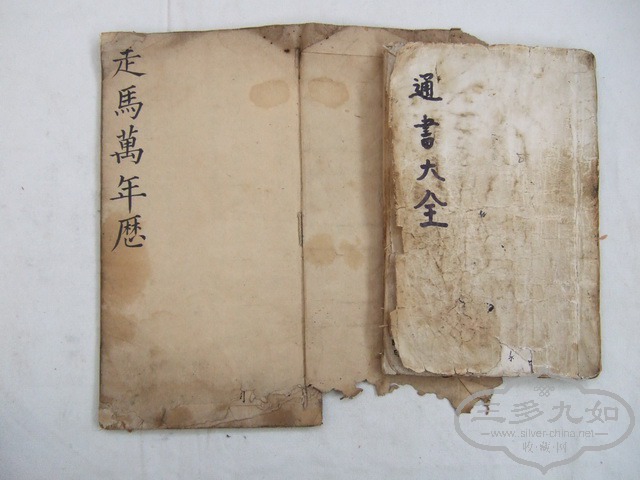 走馬萬年歷
通書大全
三多九如
www.silver-china.net
收·藏·网